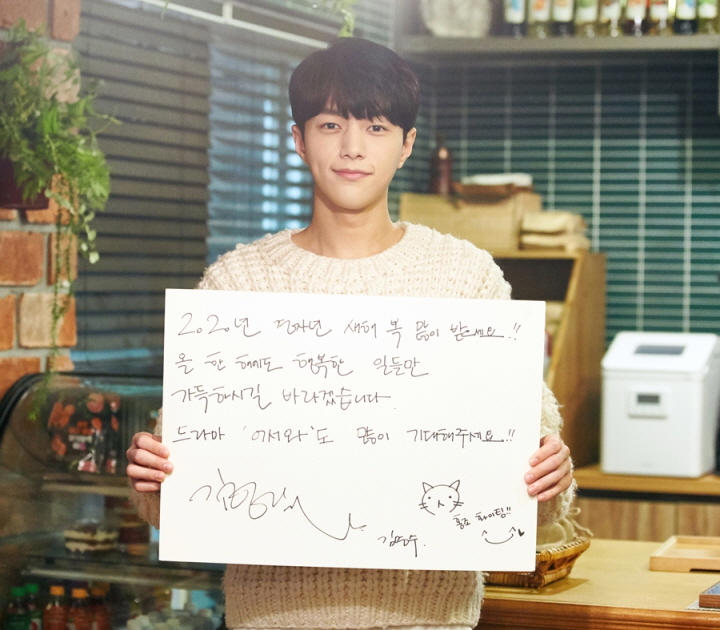 2020년 경자년 새해 복 많이 받으세요!!
올 한 해에도 행복한 일들만
가득하시길 바라겠습니다.
드라마 '어서와'도 많이 기대해주세요!!
홍조 화이팅!!
김명수.